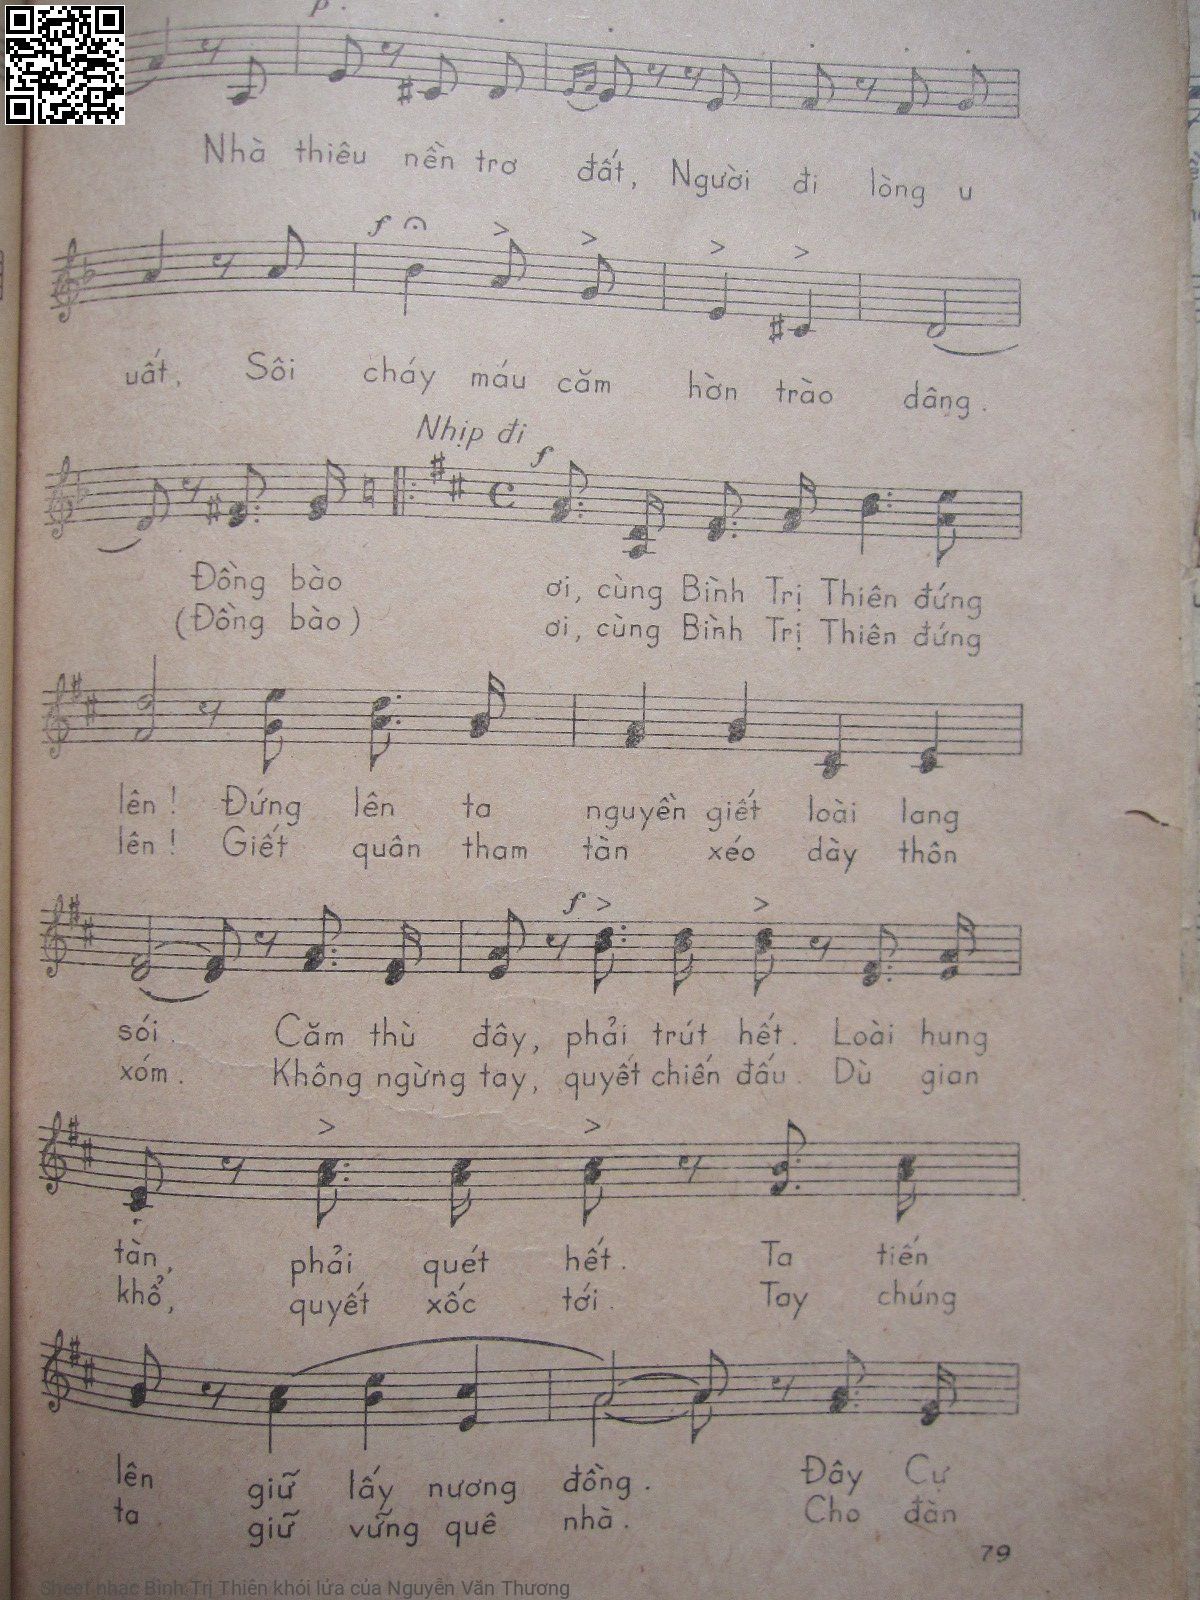 p.
Nhà thiêu nền trơ đất, Người đi lòng u
f
uất, Sôi cháy máu căm hờn trào dâng.
Nhịp đi
f
Đồng bào ơi, cùng Bình Trị Thiên đứng
(Đồng bào) ơi, cùng Bình Trị Thiên đứng
lên! Đứng lên ta nguyền giết loài lang
lên! Giết quân tham tàn xéo dày thôn
f
sói. Căm thù đây, phải trút hết. Loài hung
xóm. Không ngừng tay, quyết chiến đấu. Dù gian
tàn, phải quét hết. Ta tiến
khổ, quyết xốc tới. Tay chúng
lên giữ lấy nương đồng. Đây Cự
ta giữ vững quê nhà. Cho đàn
79
Sheet nhạc Bình Trị Thiên khói lửa của Nguyễn Văn Thương